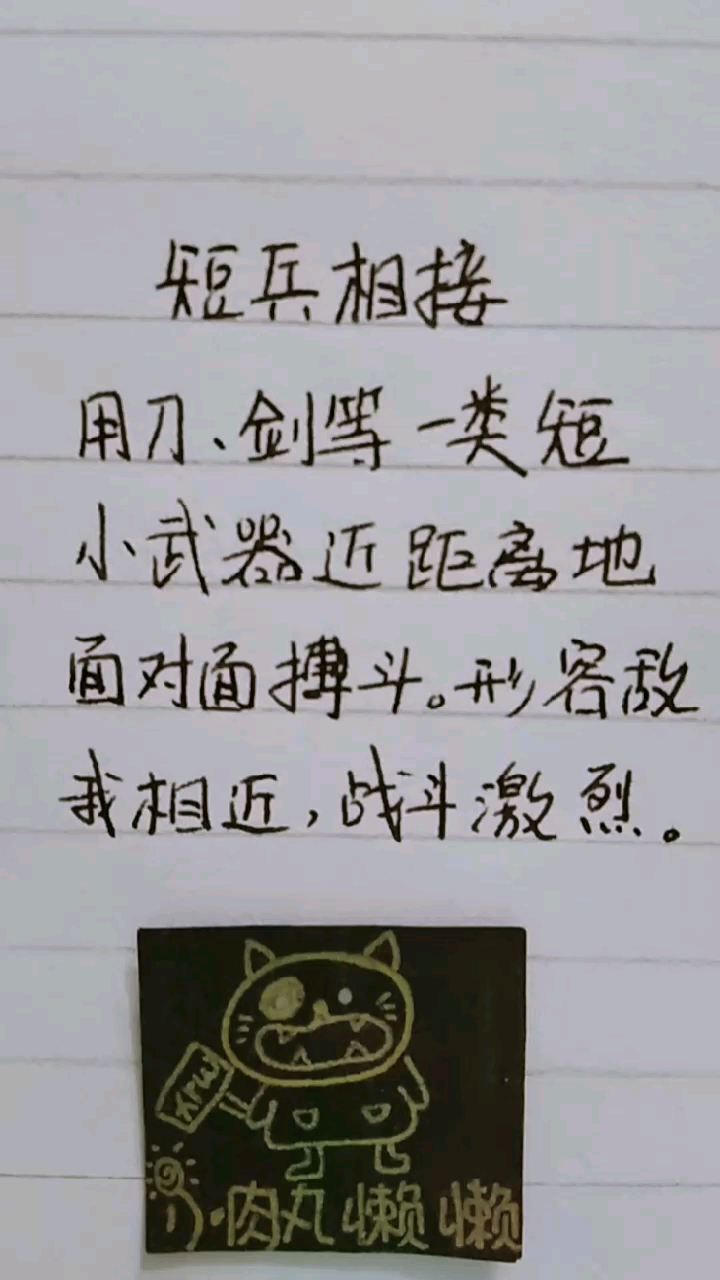 短兵相接
用刀、剑等一类短
小武器近距离地
面对面搏斗。形容敌
我相近，战斗激烈。
XMW
小肉丸懒懒